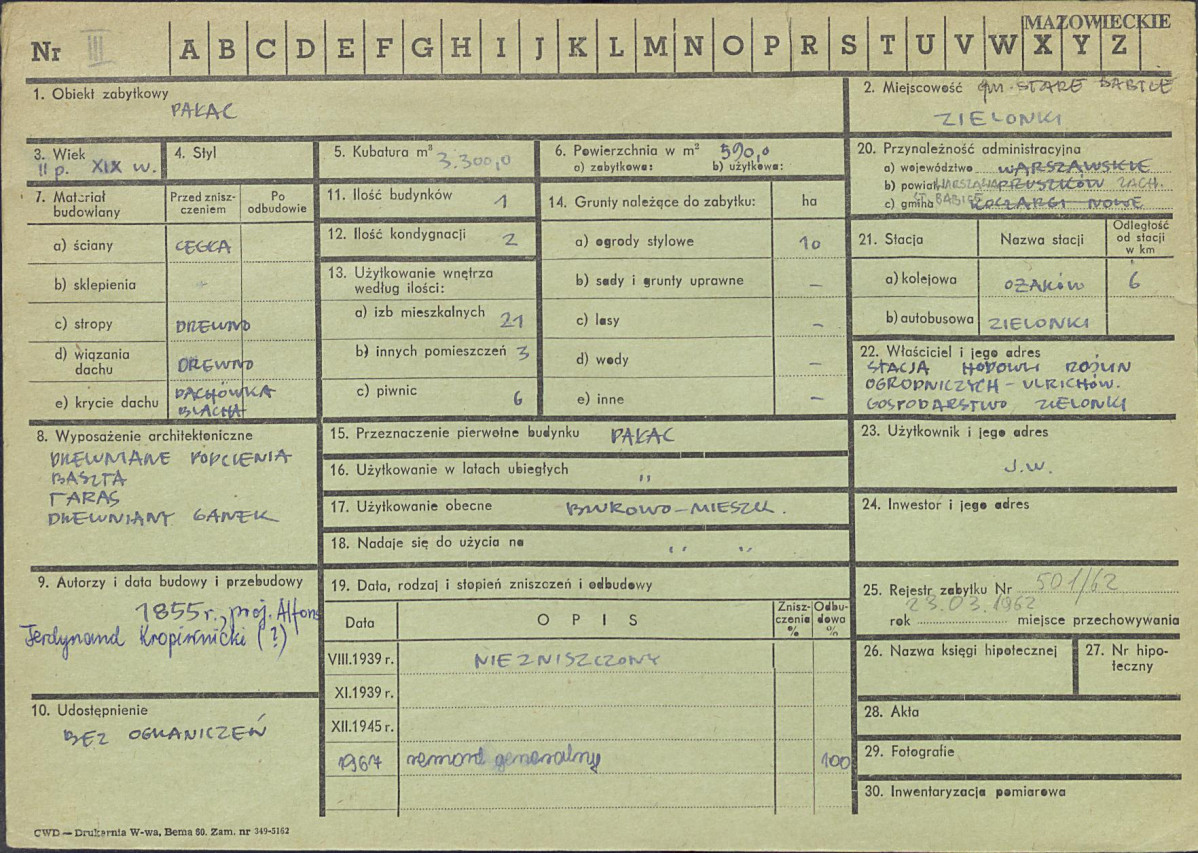 MAZOWIECKIE
Nr III A B C D E F G H I J K L M N O P R S T U V W X Y Z
1. Obiekt zabytkowy
PAŁAC
2. Miejscowość gm. STARE BABICE
ZIELONKI
3. Wiek
II p. XIX w.
4. Styl
5. Kubatura m³
3.300,0
6. Powierzchnia w m² 590,0
a) zabytkowa: b) użytkowa:
20. Przynależność administracyjna
a) województwo WARSZAWSKIE
b) powiat WARSZAWA PRUSZKÓW ZACH.
c) gmina ST. BABICE KOCZARGI NOWE
7. Materiał budowlany
Przed zniszczeniem
Po odbudowie
a) ściany CEGŁA
b) sklepienia -
c) stropy DREWNO
d) wiązania dachu DREWNO
e) krycie dachu DACHÓWKA
BLACHA
11. Ilość budynków 1
12. Ilość kondygnacji 2
13. Użytkowanie wnętrza
według ilości:
a) izb mieszkalnych 21
b) innych pomieszczeń 3
c) piwnic 6
14. Grunty należące do zabytku: ha
a) ogrody stylowe 10
b) sady i grunty uprawne –
c) lasy –
d) wody –
e) inne –
21. Stacja
Nazwa stacji
Odległość
od stacji
w km
a) kolejowa OŻARÓW 6
b) autobusowa ZIELONKI
22. Właściciel i jego adres
STACJA HODOWLI ROŚLIN
OGRODNICZYCH – ULRICHÓW.
GOSPODARSTWO ZIELONKI
8. Wyposażenie architektoniczne
DREWNIANE PODCIENIA
BASZTA
TARAS
DREWNIANY GANEK
15. Przeznaczenie pierwotne budynku PAŁAC
16. Użytkowanie w latach ubiegłych ,,
17. Użytkowanie obecne BIUROWO – MIESZK.
18. Nadaje się do użycia na ,, ,,
23. Użytkownik i jego adres
J.w.
24. Inwestor i jego adres
9. Autorzy i data budowy i przebudowy
1855 r., proj. Alfons
Ferdynand Kropiwnicki (?)
19. Data, rodzaj i stopień zniszczeń i odbudowy
Data
O P I S
Zniszczenia %
Odbudowa %
VIII.1939 r. NIEZNISZCZONY
XI.1939 r.
XII.1945 r.
1967 remont generalny 100
25. Rejestr zabytku Nr 501/62
23.03.1962
rok miejsce przechowywania
26. Nazwa księgi hipotecznej
27. Nr hipoteczny
28. Akta
29. Fotografie
30. Inwentaryzacja pomiarowa
10. Udostępnienie
BEZ OGRANICZEŃ
CWD — Drukarnia W-wa, Bema 60. Zam. nr 349-5162